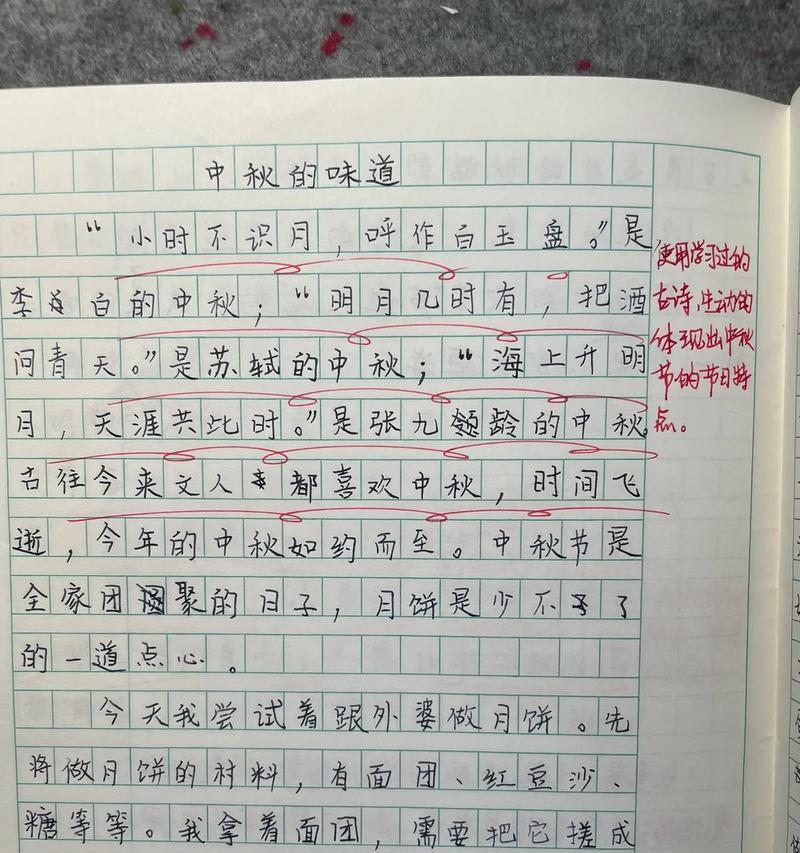 中秋的味道
“小时不识月，呼作白玉盘。”是
李白的中秋；“明月几时有，把酒
问青天。”是苏轼的中秋；“海上升明
月，天涯共此时。”是张九领龄的中秋。
古往今来文人都喜欢中秋，时间飞
逝，今年的中秋如约而至。中秋节是
全家团聚的日子，月饼是少不了
的一道点心。
今天我尝试着跟外婆做月饼。先
将做月饼的材料，有面团、红豆沙、
糖等等。我拿着面团，需要把它搓成
使用学习过的
古诗，生动的
体现出中秋
节的节日特
点。